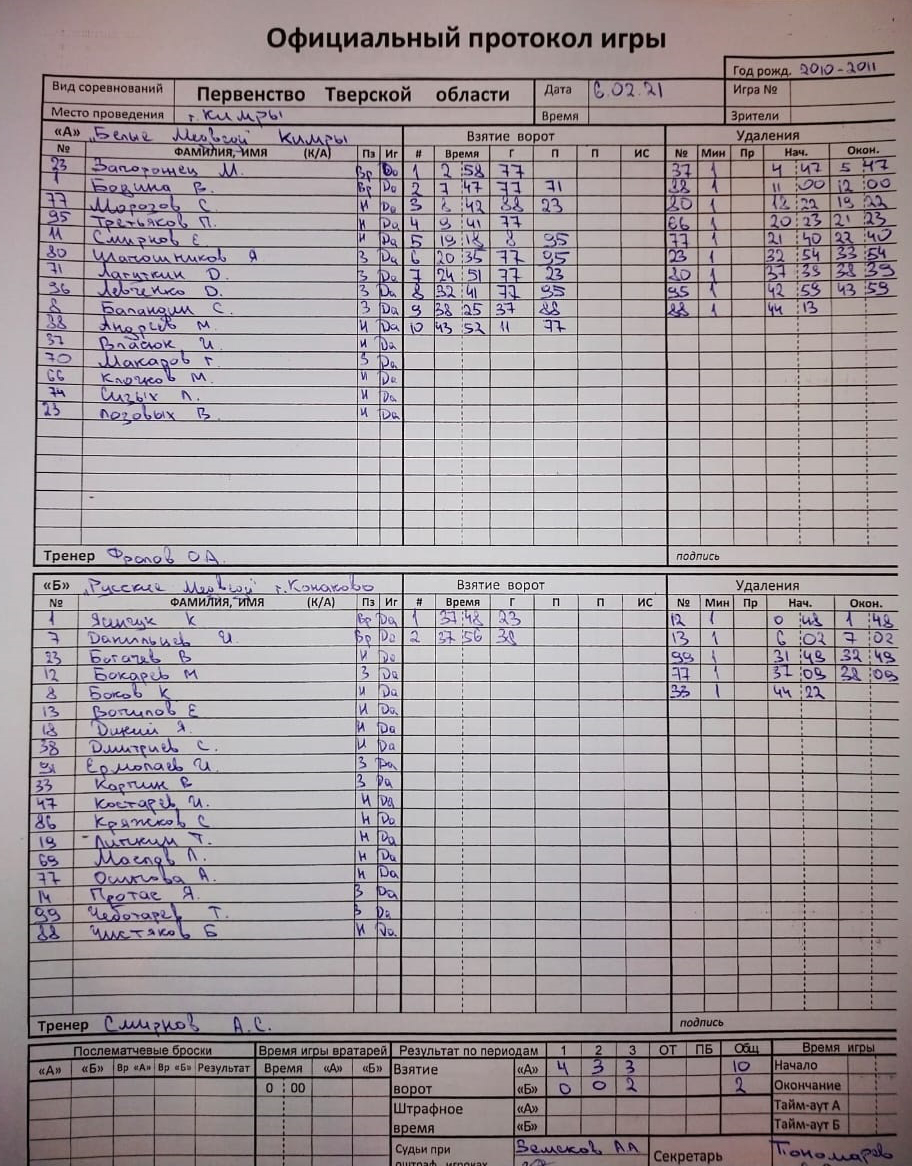 Официальный протокол игры
Год рожд. 2010-2011
Вид соревнований Первенство Тверской области Дата 6.02.21 Игра №
Место проведения г. Кимры Время Зрители
«А» "Белые Медведи" Кимры Взятие ворот Удаления
№ ФАМИЛИЯ, ИМЯ (К/А) Пз Иг # Время Г П П ИС № Мин Пр Нач. Окон.
23 Запорожец М. Вр Да 1 2 58 77 37 1 4 47 5 47
1 Бодина В. Вр Да 2 7 47 77 71 88 1 11 00 12 00
77 Морозов С. Н Да 3 8 42 88 23 80 1 18 22 19 22
95 Третьяков П. Н Да 4 9 41 77 66 1 20 23 21 23
11 Смирнов Е Н Да 5 19 18 8 95 77 1 21 40 22 40
80 Я З Да 6 20 35 77 95 23 1 32 54 33 54
71 Лагуткин D. З Да 7 24 51 77 23 80 1 37 39 38 39
96 Левченко D. З Да 8 32 41 77 95 95 1 42 59 43 59
8 Баландин С. З Да 9 38 25 37 88 88 1 44 13
88 Андреев М. Н Да 10 43 52 11 77
37 Власюк И. Н Да
70 Макаров Г З Да
66 Клочков М. Н Да
74 Сизых Л. Н Да
23 Лозовых В. Н Да
Тренер Фролов О.А. подпись
«Б» "Русские Медведи" г. Конаково Взятие ворот Удаления
№ ФАМИЛИЯ, ИМЯ (К/А) Пз Иг # Время Г П П ИС № Мин Пр Нач. Окон.
1 Ящук К Вр Да 1 37 48 23 12 1 0 48 1 48
7 Данильцев И. Вр Да 2 37 56 38 13 1 6 02 7 02
23 Богачев В Н Да 99 1 31 49 32 49
12 Бокарев М З Да 77 1 37 09 38 09
8 Боков К Н Да 33 1 44 22
13 Вотилов Е Н Да
18 Дикий Я. Н Да
38 Дмитриев С. Н Да
91 Ермолаев И. З Да
33 Корчик В З Да
47 Костарев И. Н Да
86 Кряжков С Н Да
19 Личкин Т. Н Да
69 Маслов Л. Н Да
77 Осипова А. Н Да
14 Протас Я. З Да
99 Чеботарев Т. З Да
88 Чистяков Б Н Да
Тренер Смирнов А.С. подпись
Послематчевые броски Время игры вратарей Результат по периодам 1 2 3 ОТ ПБ Общ Время игры
«А» «Б» Вр «А» Вр «Б» Результат Время «А» «Б» Взятие «А» 4 3 3 10 Начало
0 00 ворот «Б» 0 0 2 2 Окончание
Штрафное «А» Тайм-аут А
время «Б» Тайм-аут Б
Судьи при Земсков АА Секретарь Пономарев